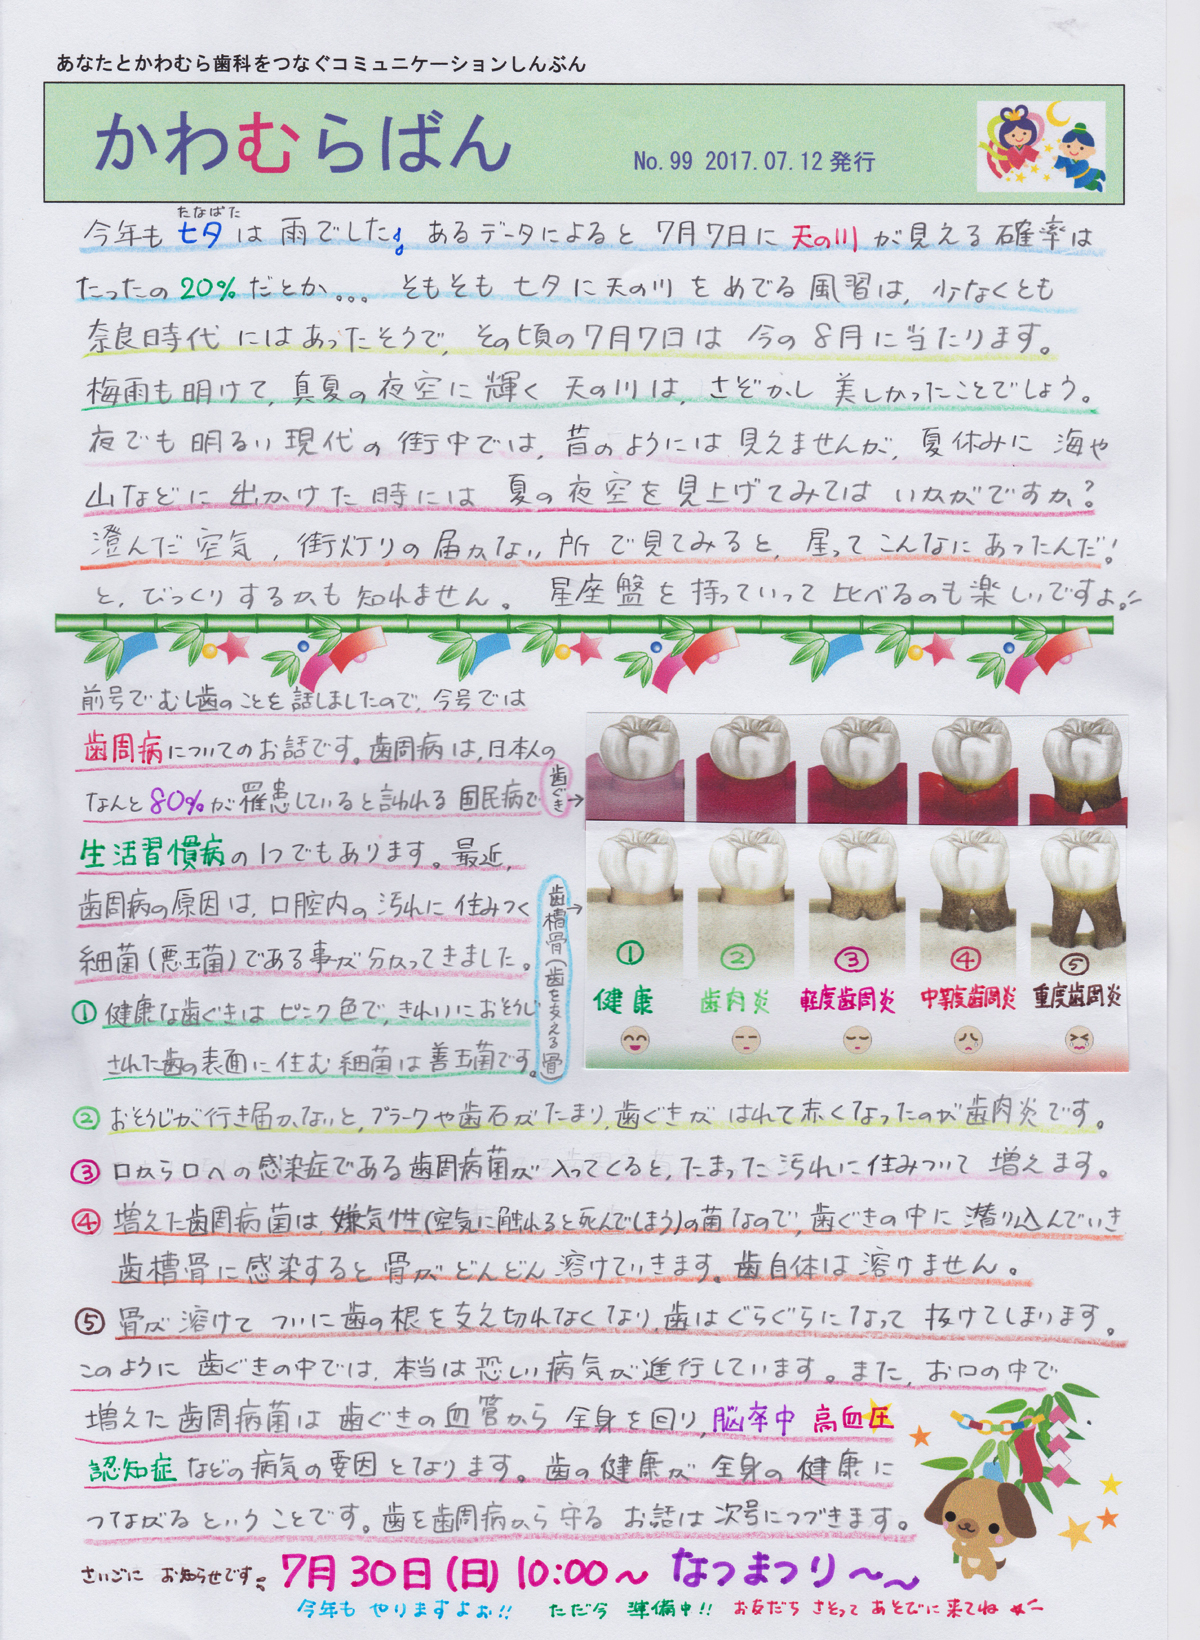 あなたとかわむら歯科をつなぐコミュニケーションしんぶん
かわむらばん
No.99 2017.07.12発行
たなばた
今年も 七夕は 雨でした。あるデータによると 7月7日に 天の川 が見える確率は
たったの 20% だとか... そもそも 七夕に天の川をめでる風習は、少なくとも
奈良時代 にはあったそうで、その頃の7月7日は 今の8月に当たります。
梅雨も明けて、真夏の夜空に輝く 天の川は、さぞかし 美しかったことでしょう。
夜でも明るい現代の街中では、昔のようには見えませんが、夏休みに 海や
山などに出かけた時には 夏の夜空を見上げてみては いかがですか?
澄んだ空気、街灯りの届かない所で見てみると、星ってこんなにあったんだ!
と、びっくりするかも知れません。 星座盤を持っていって比べるのも楽しいですよ。
前号でむし歯のことを話しましたので、今号では
歯周病についてのお話です。歯周病は、日本人の
なんと80%が罹患していると言われる国民病で
生活習慣病の1つでもあります。最近、
歯周病の原因は、口腔内の汚れに住みつく
細菌(悪玉菌)である事が分かってきました。
①健康な歯ぐきはピンク色で、きれいにおそうじ
された歯の表面に住む細菌は善玉菌です。
歯ぐき→
歯槽骨(歯を支える骨)→
① ② ③ ④ ⑤
健康 歯肉炎 軽度歯周炎 中等度歯周炎 重度歯周炎
②おそうじが行き届かないと、プラークや歯石がたまり、歯ぐきが はれて赤くなったのが歯肉炎です。
③口から口への感染症である歯周病菌が入ってくると、たまった汚れに住みついて増えます。
④増えた歯周病菌は、嫌気性(空気に触れると死んでしまう)の菌なので、歯ぐきの中に潜り込んでいき
歯槽骨に感染すると骨がどんどん溶けていきます。歯自体は溶けません。
⑤骨が溶けて ついに歯の根を支え切れなくなり、歯はぐらぐらになって抜けてしまいます。
このように 歯ぐきの中では、本当は恐しい病気が進行しています。また、お口の中で
増えた歯周病菌は歯ぐきの血管から全身を回り、脳卒中 高血圧
認知症などの病気の要因となります。歯の健康が全身の健康に
つながるということです。歯を歯周病から守る お話は次号につづきます。
さいごに お知らせです。 7月30日(日)10:00〜 なつまつり〜〜
今年も やりますよぉ!! ただ今 準備中!! お友だち さそって あそびに来てね